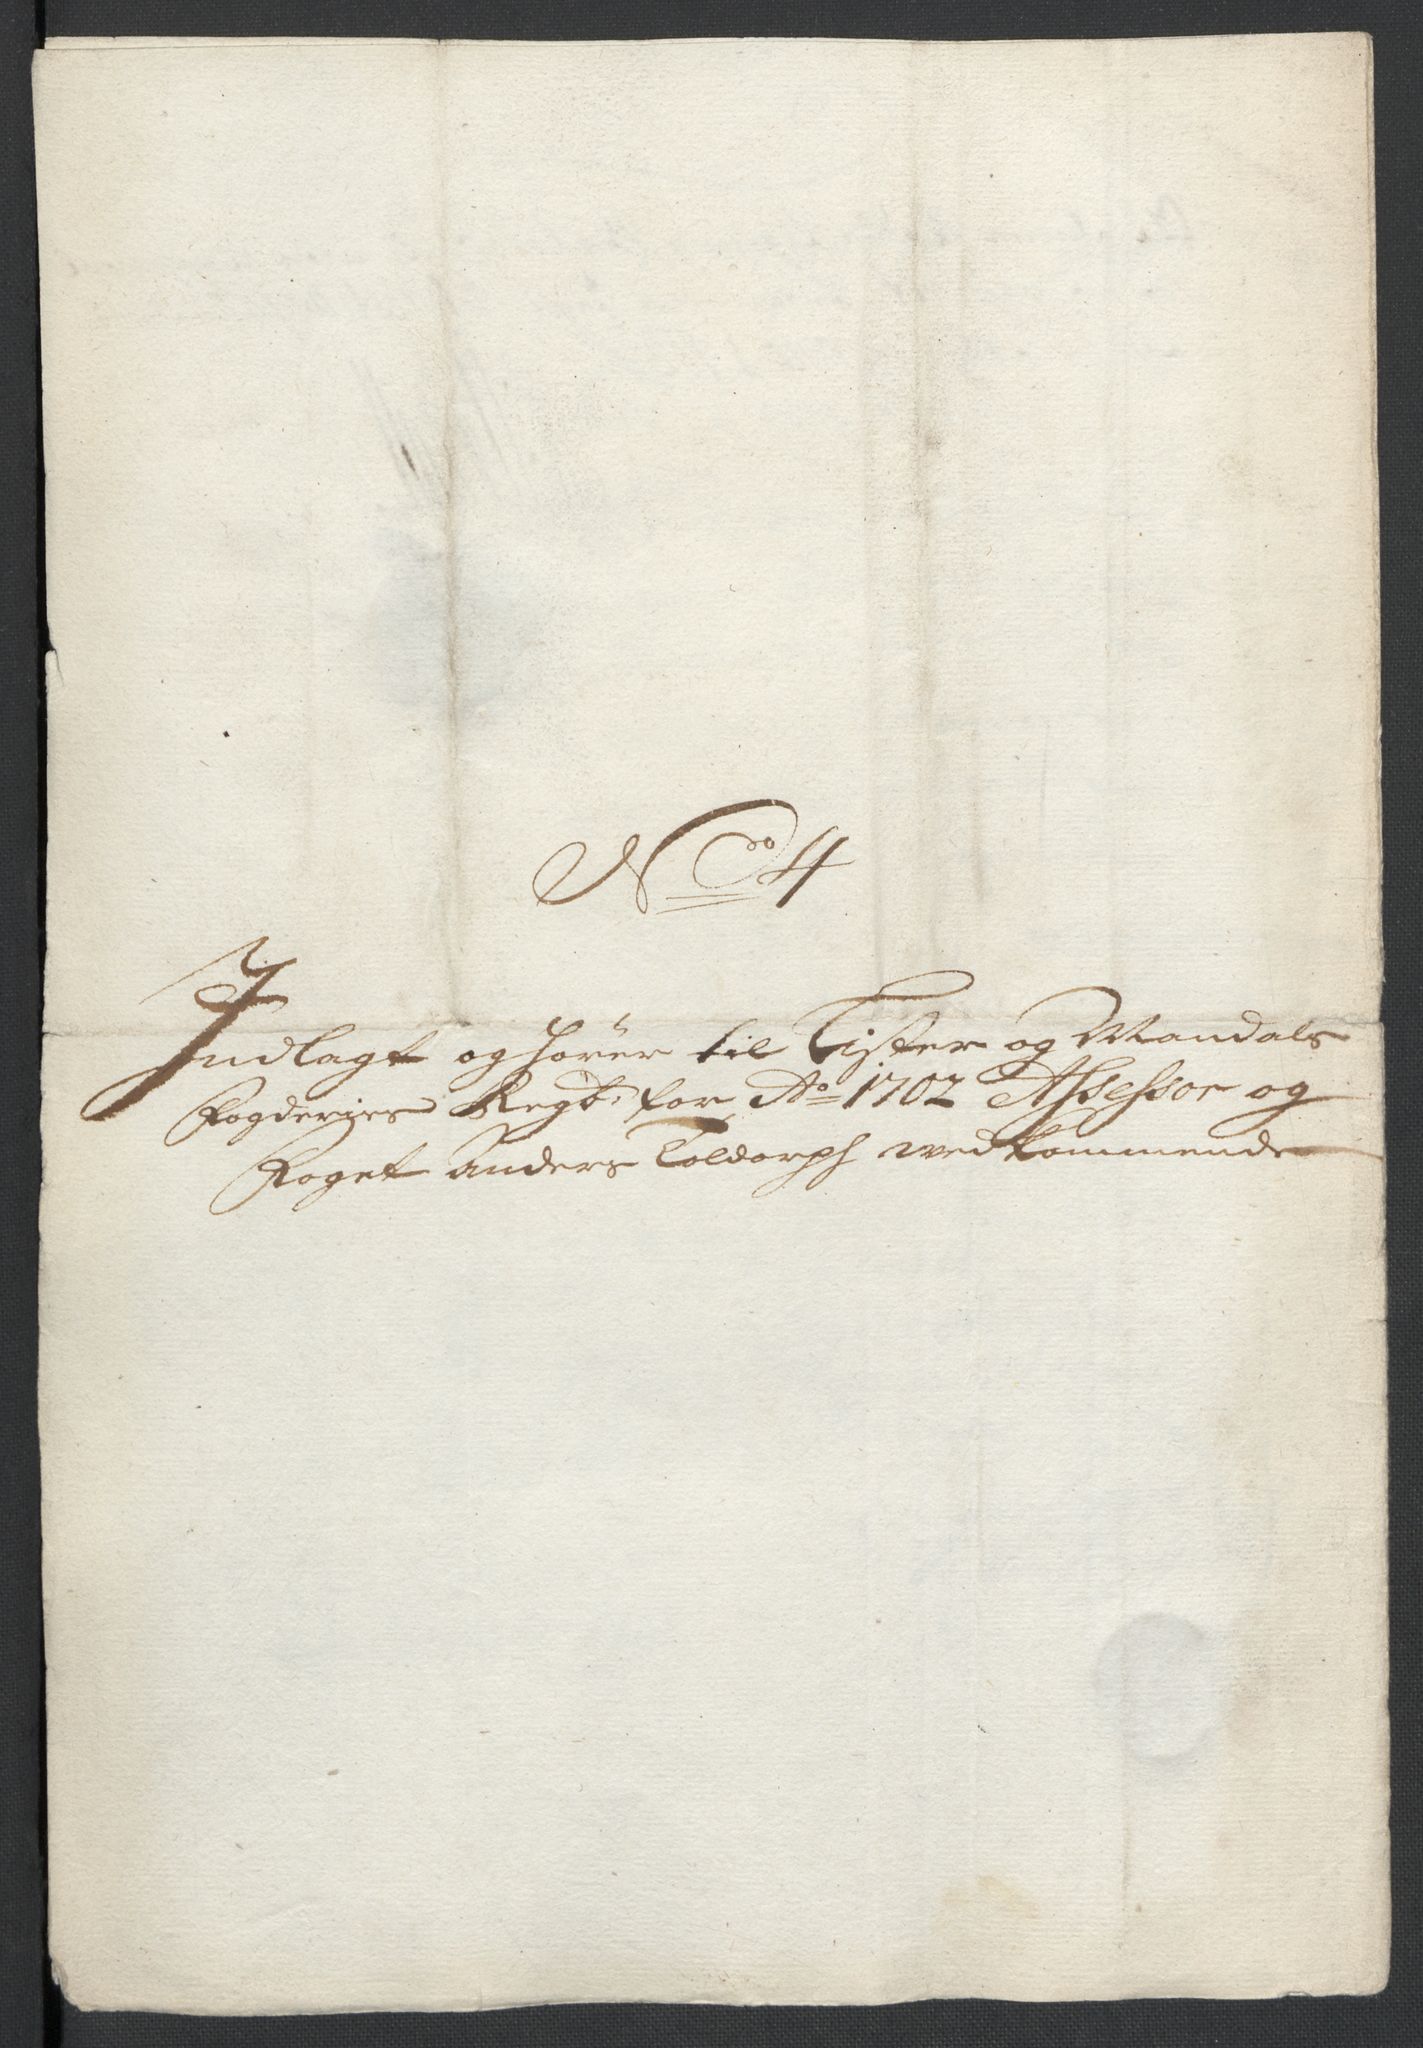 No 4
Indlagt og hører til Lister og Mandals
Fogderies Regb: for Ao 1702 Assessor og
Foget Anders Toldorph wedkommende